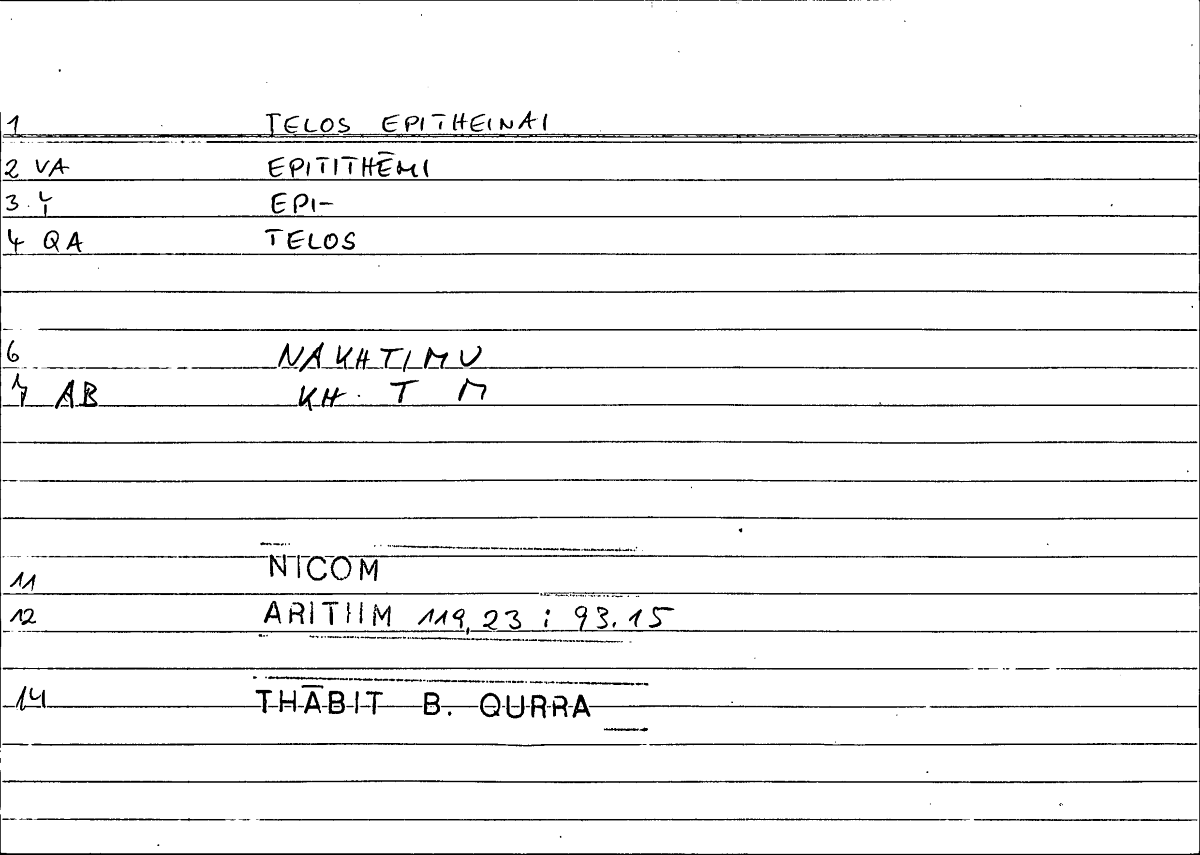 1 TELOS EPITHEINAI
2 VA EPITITHĒMI
3 Y EPI-
4 QA TELOS
6 NAKHTIMU
7 AB KH T M
11 NICOM
12 ARITIIM 119,23 ; 93.15
14 THĀBIT B. QURRA